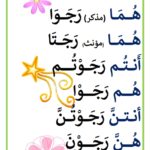 هُمَا (مذكر) رَجَوَا
هُمَا (مؤنث) رَجَتَا
أَنتُم رَجَوْتُـم
هُم رَجَـوْا
أَنتنَّ رَجَوْتُنَّ
هُنَّ رَجَـوْنَ